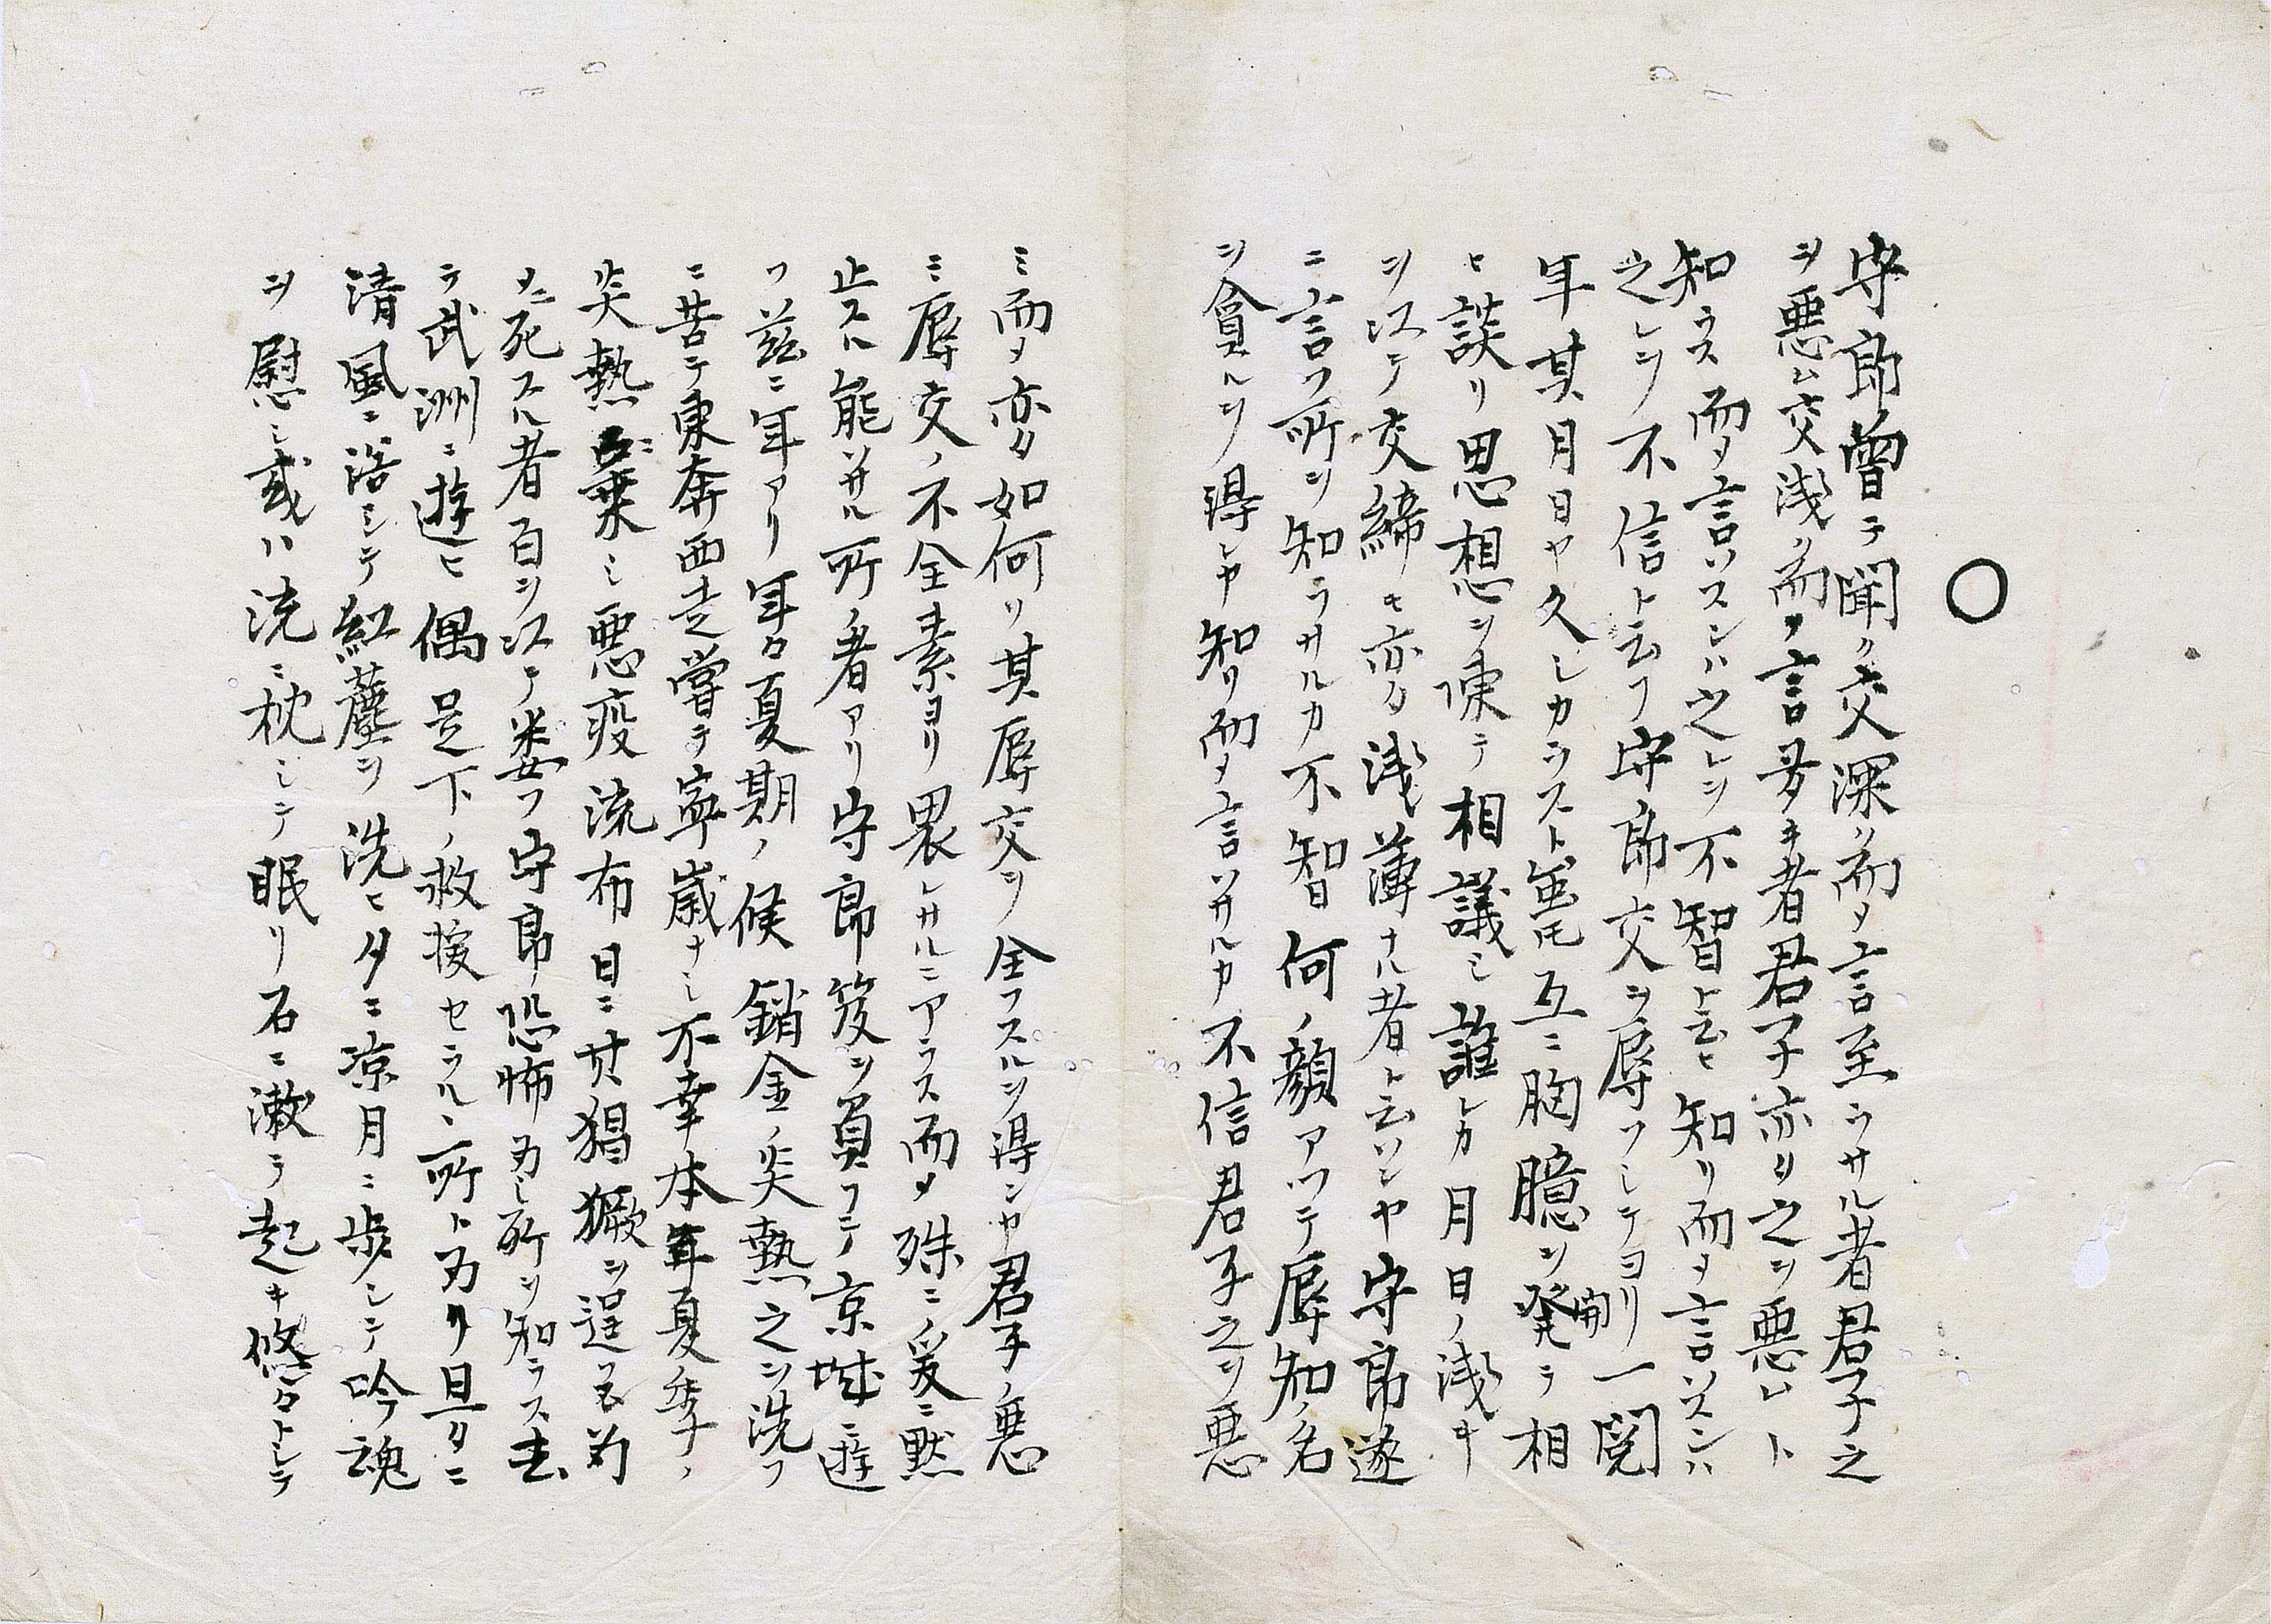 ○
守郎曽テ聞ク交深ク而メ言至ラサル者君子之
ヲ悪ム交浅ク而メ言多キ者君子亦タ之ヲ悪ムト
知ラス而メ言ハスンハ之レヲ不智ト云ヒ知リ而メ言ハスンハ
之レヲ不信ト云フ守郎交ヲ辱フシテヨリ開一閲
年其月日ヤ久シカラスト虽𪜈互ニ胸臆ヲ発ラ相
ヒ談リ思想ヲ陳テ相議シ誰レカ月日ノ浅キ
ヲ以テ交締モ亦タ浅薄ナル者ト云ハンヤ守郎遂
ニ言フ所ヲ知ラサルカ不智何ノ顔アツテ辱知ノ名
ヲ貪ルヲ得ンヤ知リ而メ言ハサルカ不信君子之ヲ悪
ミ而メ亦タ如何ソ其辱交ヲ全フスルヲ得ンヤ君子ノ悪
ミ辱交ノ不全素ヨリ畏レサルニアラス而メ殊ニ爰ニ黙
止スルニ能ハサル所ノ者アリ守郎笈ヲ負フテ京城ニ遊
フ茲ニ年アリ年々夏期ノ候銷金ノ炎熱之ヲ洗フ
ニ苦テ東奔西走嘗テ寧歳ナシ不幸本年夏季ノ
炎熱ニ乗シ悪疫流布日ニ其猖獗ヲ逞フシ為
メニ死スル者百ヲ以テ委フ守郎恐怖為ス所ヲ知ラス去
テ武洲ニ遊ヒ偶足下ノ救援セラルヽ所ト為リ旦タニ
清風ニ浴シテ紅塵ヲ洗ヒタニ凉月ニ歩シテ吟魂
ヲ慰シ或ハ流ニ枕シテ眠リ石ニ漱テ起キ悠々トシテ